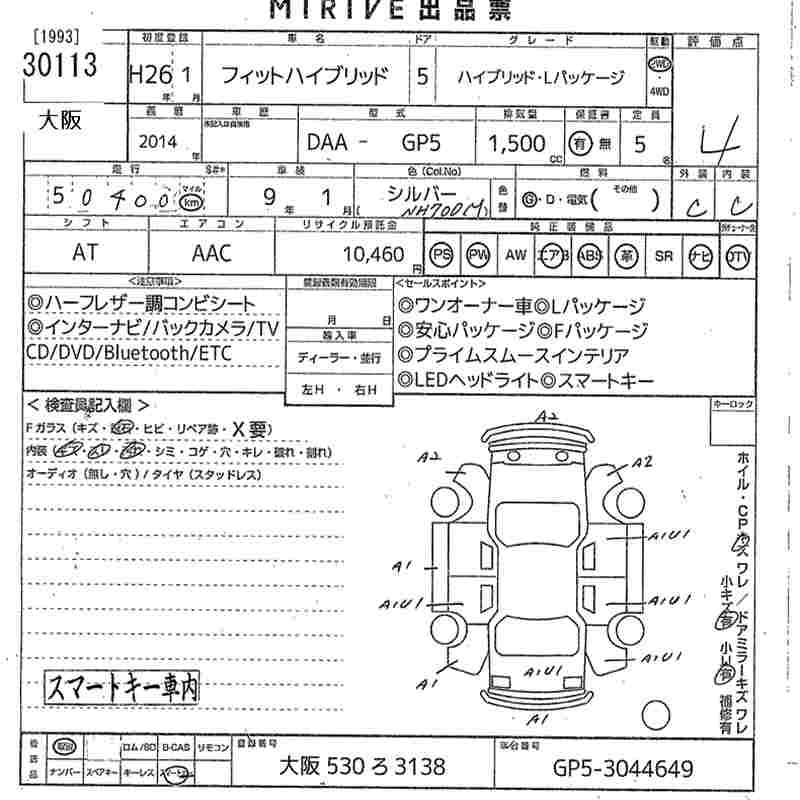 MIRIVE 出品票
[1993]
30113
大阪
初度登録
H26 1
年 月
車名
フィットハイブリッド
ドア
5
グレード
ハイブリッド・Lパッケージ
駆動
2WD
・
4WD
評価点
4
2014
年
車歴
型式
DAA - GP5
排気量
1,500
CC
保証書
有 無
定員
5
名
走行
50400
マイル
km
車検
9年 1月
色(Col.No)
シルバー
NH700(M)
色替
燃料
G・D・電気( その他 )
外装
C
内装
C
シフト
AT
エアコン
AAC
リサイクル預託金
10,460
円
純正装備品
PS PW AW エアB ABS 革 SR ナビ DTV
<注意事項>
◎ハーフレザー調コンビシート
◎インターナビ/バックカメラ/TV
CD/DVD/Bluetooth/ETC
登録書類有効期限
月 日
輸入車
ディーラー・並行
左H ・ 右H
<セールスポイント>
◎ワンオーナー車◎Lパッケージ
◎安心パッケージ◎Fパッケージ
◎プライムスムースインテリア
◎LEDヘッドライト◎スマートキー
キーロック
<検査員記入欄>
Fガラス(キズ・飛石・ヒビ・リペア跡・X要)
シミ・コゲ・穴・キレ・破れ・割れ)
オーディオ(無し・穴)/タイヤ(スタッドレス)
A2
A2
A2
A1U1
A1
A1U1
A1U1
A1U1
A1U1
A1
A1
ホイル・CPキズ ワレ/ドアミラーキズ ワレ
小キズ有 小凹有 補修有
スマートキー車内
後送品
取説
ロム/SD
B-CAS
リモコン
ナンバー
スペアキー
キーレス
スマートキー
登録番号
大阪 530 ろ 3138
車台番号
GP5-3044649